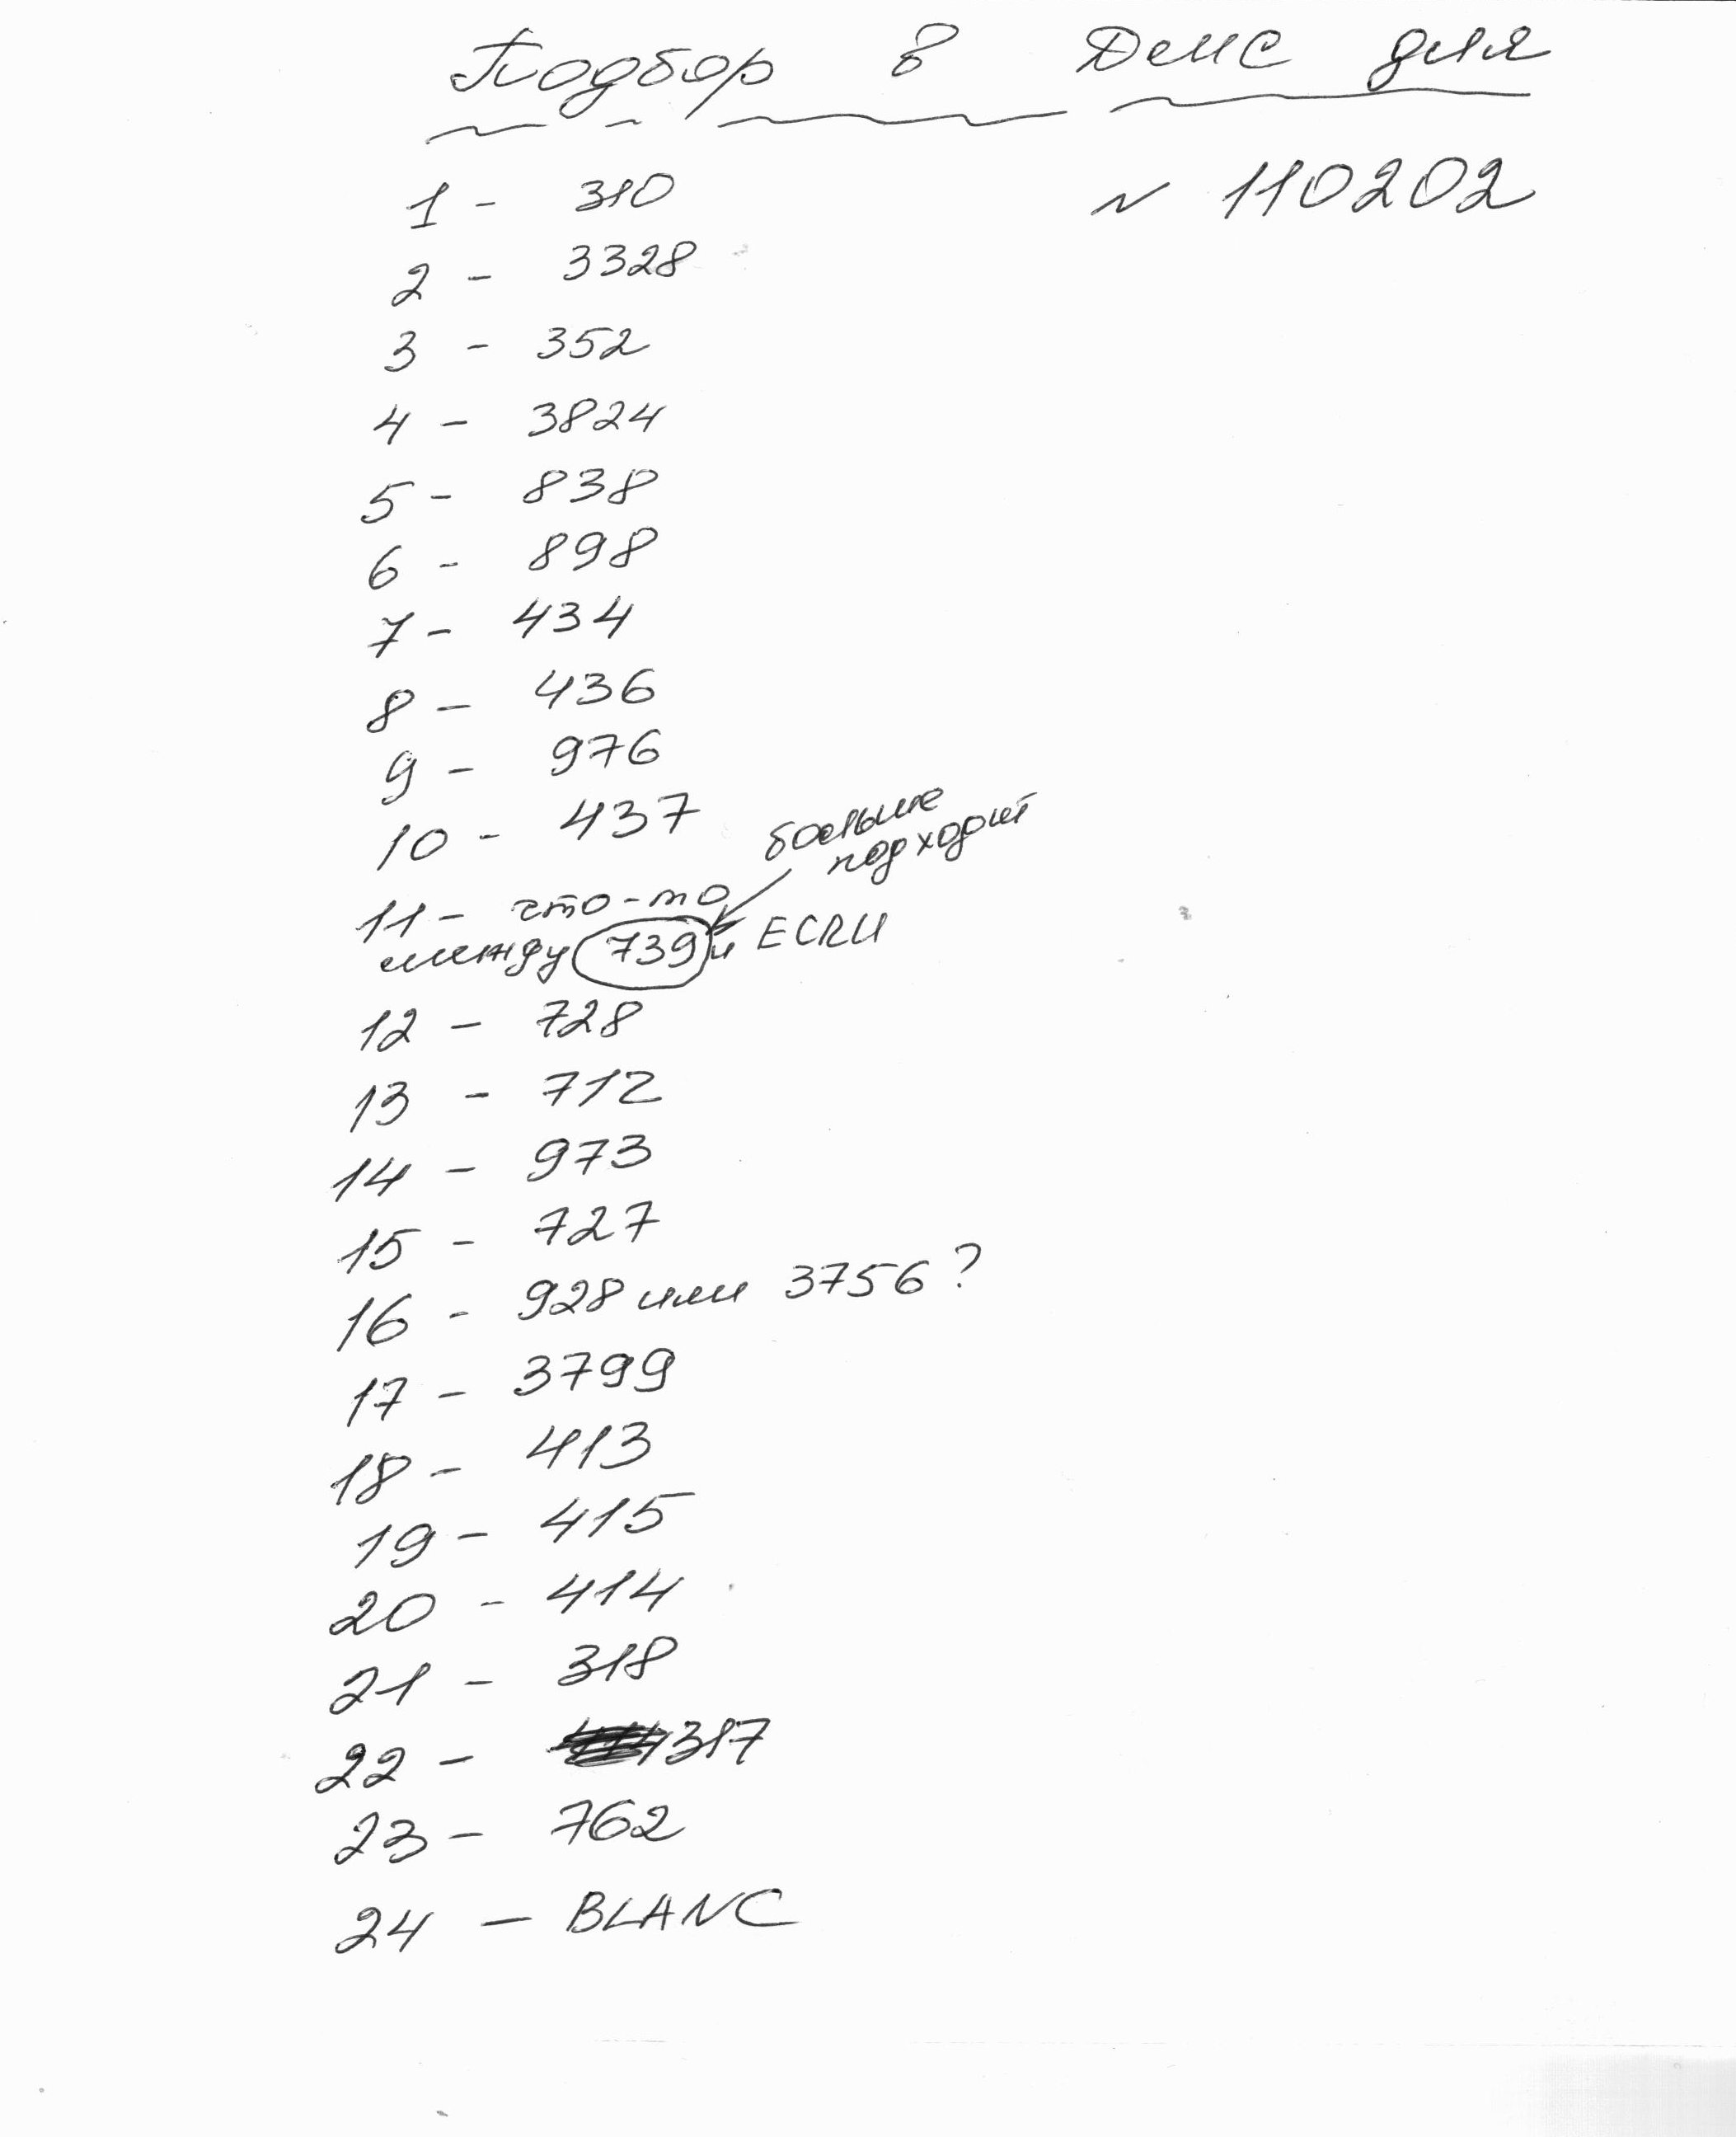 Подбор в ДМС для
N 110202
1 - 310
2 - 3328
3 - 352
4 - 3824
5 - 838
6 - 898
7 - 434
8 - 436
9 - 976
10 - 437
больше
подходит
11 - что-то
между 739 и ЕСRU
12 - 728
13 - 712
14 - 973
15 - 727
16 - 928 или 3756?
17 - 3799
18 - 413
19 - 415
20 - 414
21 - 318
22 - 317
23 - 762
24 - BLANC